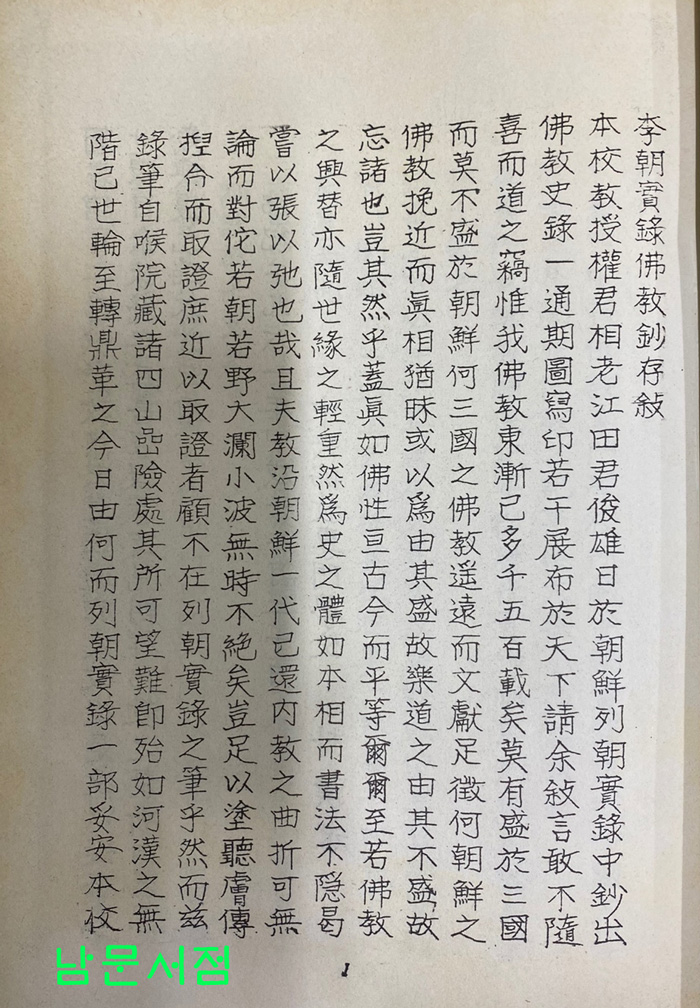 李朝實錄佛教鈔存敍
本校教授權君相老江田君俊雄日於朝鮮列朝實錄中鈔出
佛教史錄一通期圖寫印若干展布於天下請余敍言敢不隨
喜而道之竊惟我佛教東漸已多千五百載矣莫有盛於三國
而莫不盛於朝鮮何三國之佛教遥遠而文獻足徵何朝鮮之
佛教挽近而眞相猶昧或以爲由其盛故樂道之由其不盛故
忘諸也豈其然乎蓋眞如佛性亘古今而平等爾爾至若佛教
之興替亦隨世緣之輕重然爲史之體如本相而書法不隱曷
嘗以張以弛也哉且夫教沿朝鮮一代已還内教之曲折可無
論而對佗若朝若野大瀾小波無時不絶矣豈足以塗聽膚傳
揑合而取證庶近以取證者顧不在列朝實錄之筆乎然而玆
錄筆自喉院藏諸四山嵒險處其所可望難卽殆如河漢之無
階已世輪至轉鼎革之今日由何而列朝實錄一部妥安本校
1
남문서점